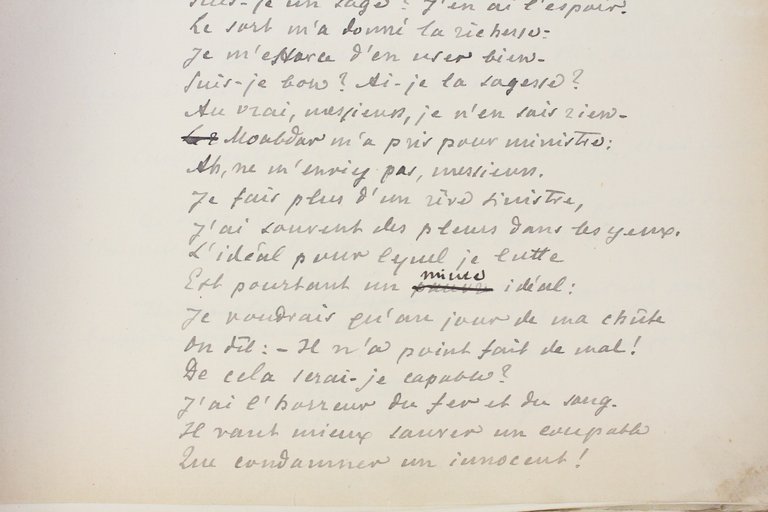 Suis-je un sage? J'en ai l'espoir.
Le sort m'a donné la richesse:
Je m'efforce d'en user bien.
Suis-je bon? Ai-je la sagesse?
Au vrai, messieurs, je n'en sais rien.
Moabdar m'a pris pour ministre:
Ah, ne m'enviez pas, messieurs.
Je fais plus d'un rêve sinistre,
J'ai souvent des pleurs dans les yeux.
L'idéal pour lequel je lutte
Est pourtant un mince idéal:
Je voudrais qu'au jour de ma chûte
On dît: - Il n'a point fait de mal!
De cela serai-je capable?
J'ai l'horreur du fer et du sang.
Il vaut mieux sauver un coupable
Que condamner un innocent!